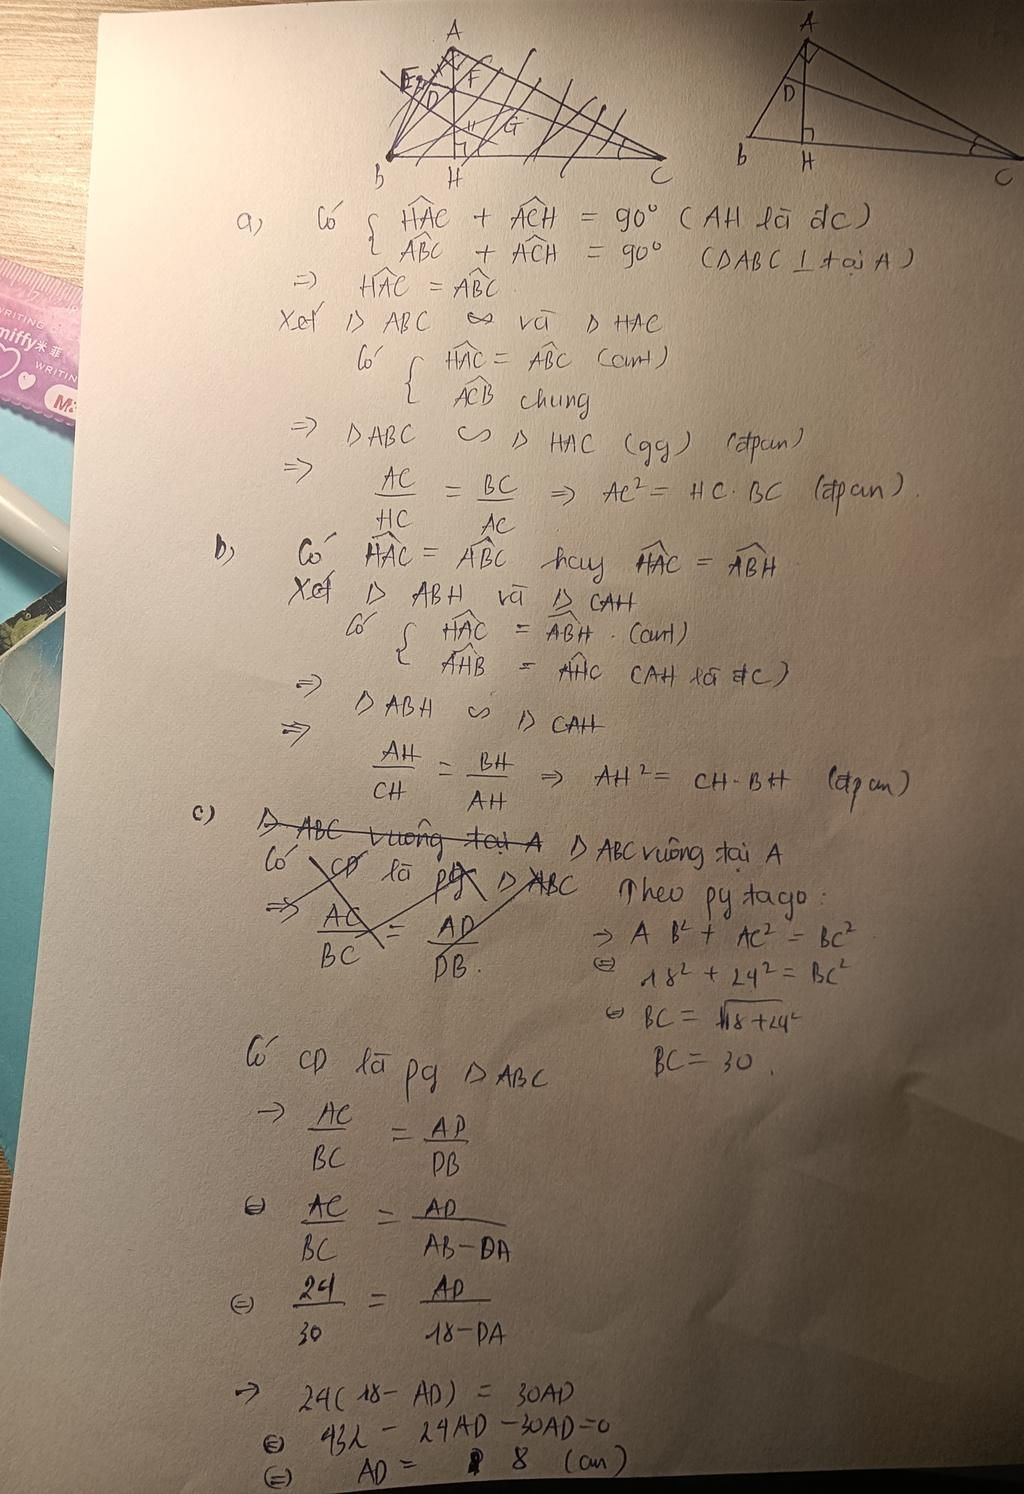 A
E
F
D
H
G
B
H
C
A
D
B
H
C
WRITING
miffy米菲
WRITIN
a) Có { HAC^ + ACH^ = 90° (AH là đc)
ABC^ + ACH^ = 90° (Δ ABC ⊥ tại A)
=> HAC^ = ABC^
Xét Δ ABC và Δ HAC
Có { HAC^ = ABC^ (cmt)
ACB^ chung
=> Δ ABC ∽ Δ HAC (gg) (đpcm)
=> AC/HC = BC/AC => AC² = HC . BC (đpcm).
b) Có HAC^ = ABC^ hay HAC^ = ABH^
Xét Δ ABH và Δ CAH
Có { HAC^ = ABH^ . (cmt)
AHB^ = AHC^ (AH là đc)
=> Δ ABH ∽ Δ CAH
=> AH/CH = BH/AH => AH² = CH . BH (đpcm)
c) Δ ABC vuông tại A Δ ABC vuông tại A
Có CD là pg Δ ABC Theo pytago :
=> AC/BC = AD/DB .
→ AB² + AC² = BC²
⇔ 18² + 24² = BC²
⇔ BC = √18+24²
BC = 30 .
Có CD là pg Δ ABC
→ AC/BC = AD/DB
⇔ AC/BC = AD/AB - DA
⇔ 24/30 = AD/18 - DA
→ 24( 18 - AD) = 30AD
⇔ 432 - 24AD - 30AD = 0
⇔ AD = 8 (cm)